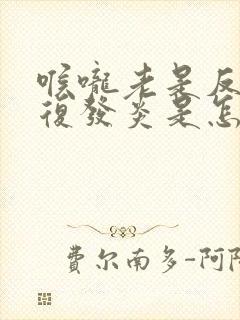 喉嚨老是反
復發炎是怎
費尔南多-阿隆